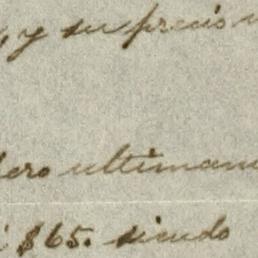 y su precio
ero ultimam
$65. siendo